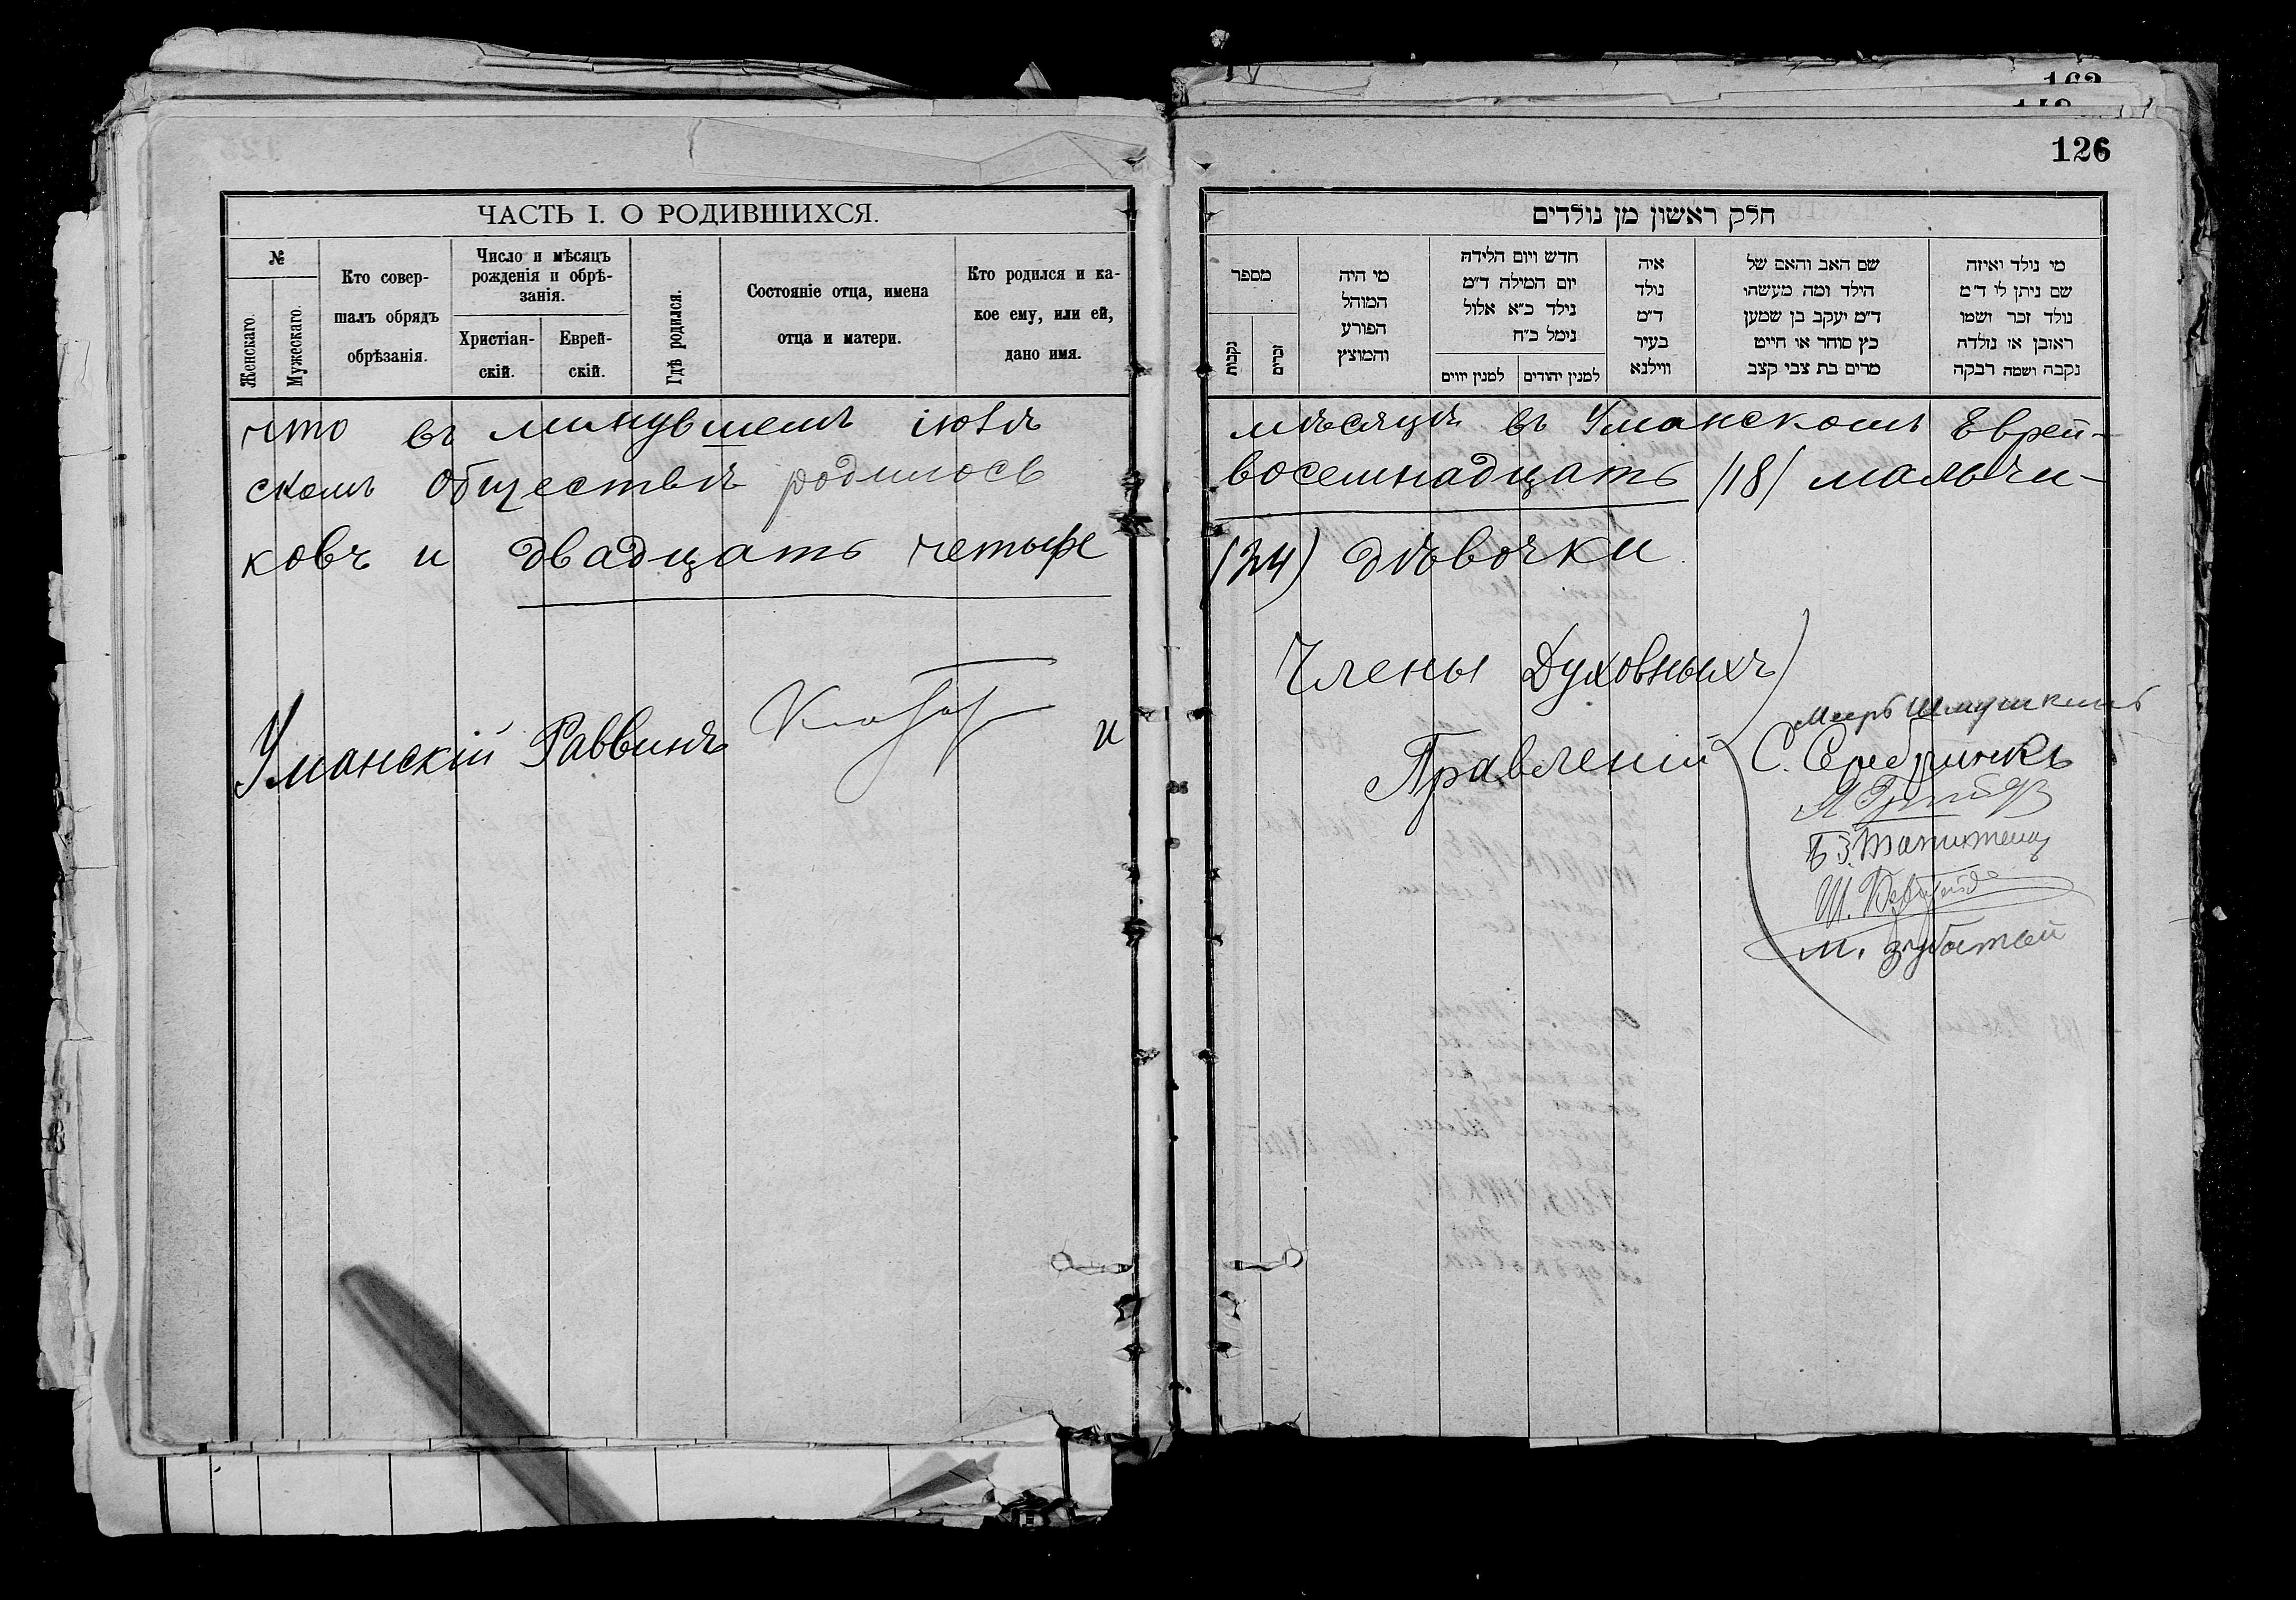 163
126
ЧАСТЬ I. О РОДИВШИХСЯ.
№
Женскаго.
Мужескаго.
Кто совер-
шалъ обрядъ
обрѣзанія.
Число и мѣсяцъ
рожденія и обрѣ-
занія.
Христіан-
скій.
Еврей-
скій.
Гдѣ родился.
Состояніе отца, имена
отца и матери.
Кто родился и ка-
кое ему, или ей,
дано имя.
חלק ראשון מן נולדים
מי נולד ואיזה
שם ניתן לו ד״מ
נולד זכר ושמו
ראובן או נולדה
נקבה ושמה רבקה
שם האב והאם של
הילד ומה מעשהו
ד״מ יעקב בן שמען
כץ סוחר או חייט
מרים בת צבי קצב
איה
נולד
ד״מ
בעיר
ווילנא
חדש ויום הלידה
יום המילה ד״מ
נילד כ״א אלול
נימל כ״ח
למנין יהודים
למנין יווים
מי היה
המוהל
הפורע
והמוצץ
מספר
זכרים
נקבות
что въ минувшемъ іюлѣ мѣсяцѣ въ Уманскомъ Еврей-
скомъ обществѣ родилось восемнадцать /18/ мальчи-
ковъ и двадцать четыре (24) дѣвочки
Уманскій Раввинъ и
Члены Духовныхъ
Правленій
Мееръ Шмушкинъ
С.
М. Зубатый